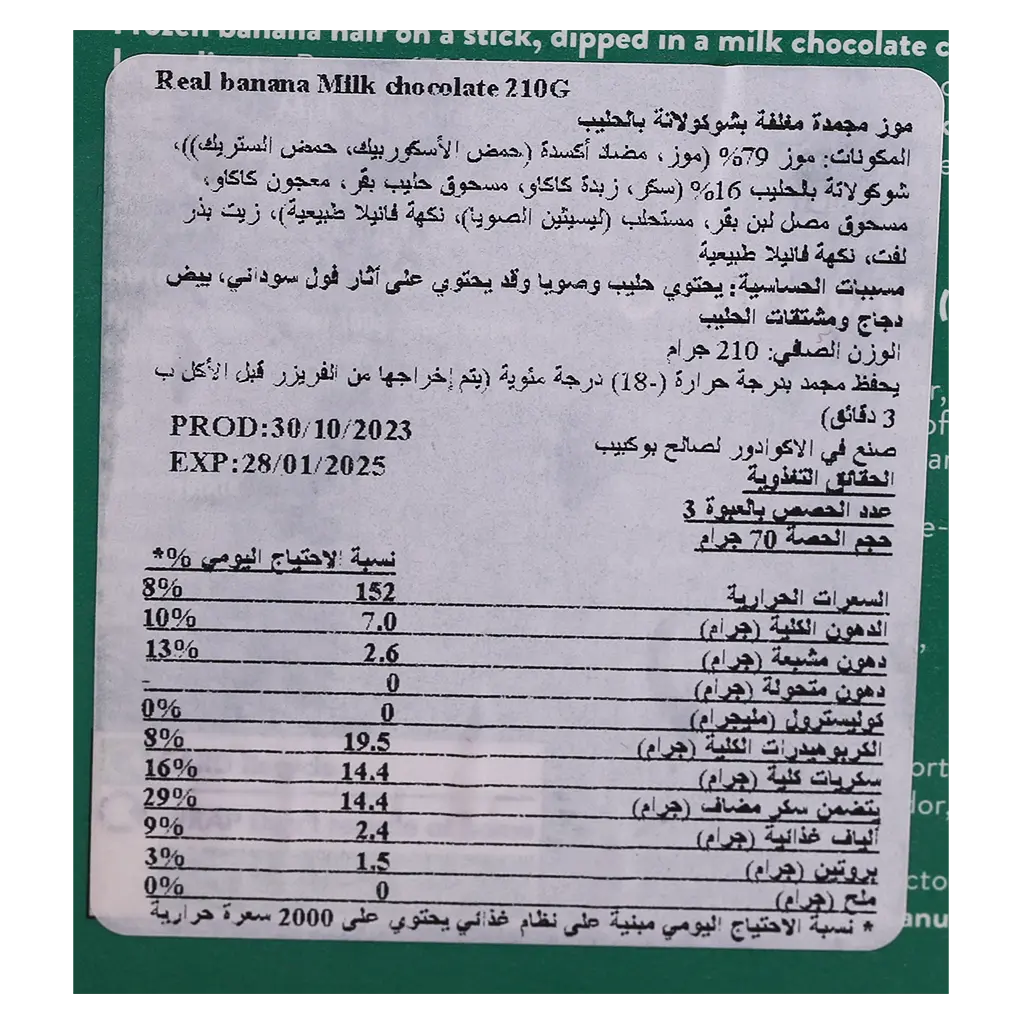 Frozen banana half on a stick, dipped in a milk chocolate c
Real banana Milk chocolate 210G
موز مجمدة مغلفة بشوكولاتة بالحليب
المكونات: موز 79% (موز، مضاد أكسدة (حمض الأسكوربيك، حمض الستريك))،
شوكولاتة بالحليب 16% (سكر، زبدة كاكاو، مسحوق حليب بقر، معجون كاكاو،
مسحوق مصل لبن بقر، مستحلب (ليسيثين الصويا)، نكهة فانيلا طبيعية)، زيت بذر
لفت، نكهة فانيلا طبيعية
مسببات الحساسية: يحتوي حليب وصويا وقد يحتوي على آثار فول سوداني، بيض
دجاج ومشتقات الحليب
الوزن الصافي: 210 جرام
يحفظ مجمد بدرجة حرارة (-18) درجة مئوية (يتم إخراجها من الفريزر قبل الأكل ب
3 دقائق)
PROD:30/10/2023
صنع في الاكوادور لصالح بوكبيب
EXP:28/01/2025
الحقائق التغذوية
عدد الحصص بالعبوة 3
حجم الحصة 70 جرام
نسبة الاحتياج اليومي %*
السعرات الحرارية 152 8%
الدهون الكلية (جرام) 7.0 10%
دهون مشبعة (جرام) 2.6 13%
دهون متحولة (جرام) 0 -
كوليسترول (مليجرام) 0 0%
الكربوهيدرات الكلية (جرام) 19.5 8%
سكريات كلية (جرام) 14.4 16%
يتضمن سكر مضاف (جرام) 14.4 29%
ألياف غذائية (جرام) 2.4 9%
بروتين (جرام) 1.5 3%
ملح (جرام) 0 0%
* نسبة الاحتياج اليومي مبنية على نظام غذائي يحتوي على 2000 سعرة حرارية